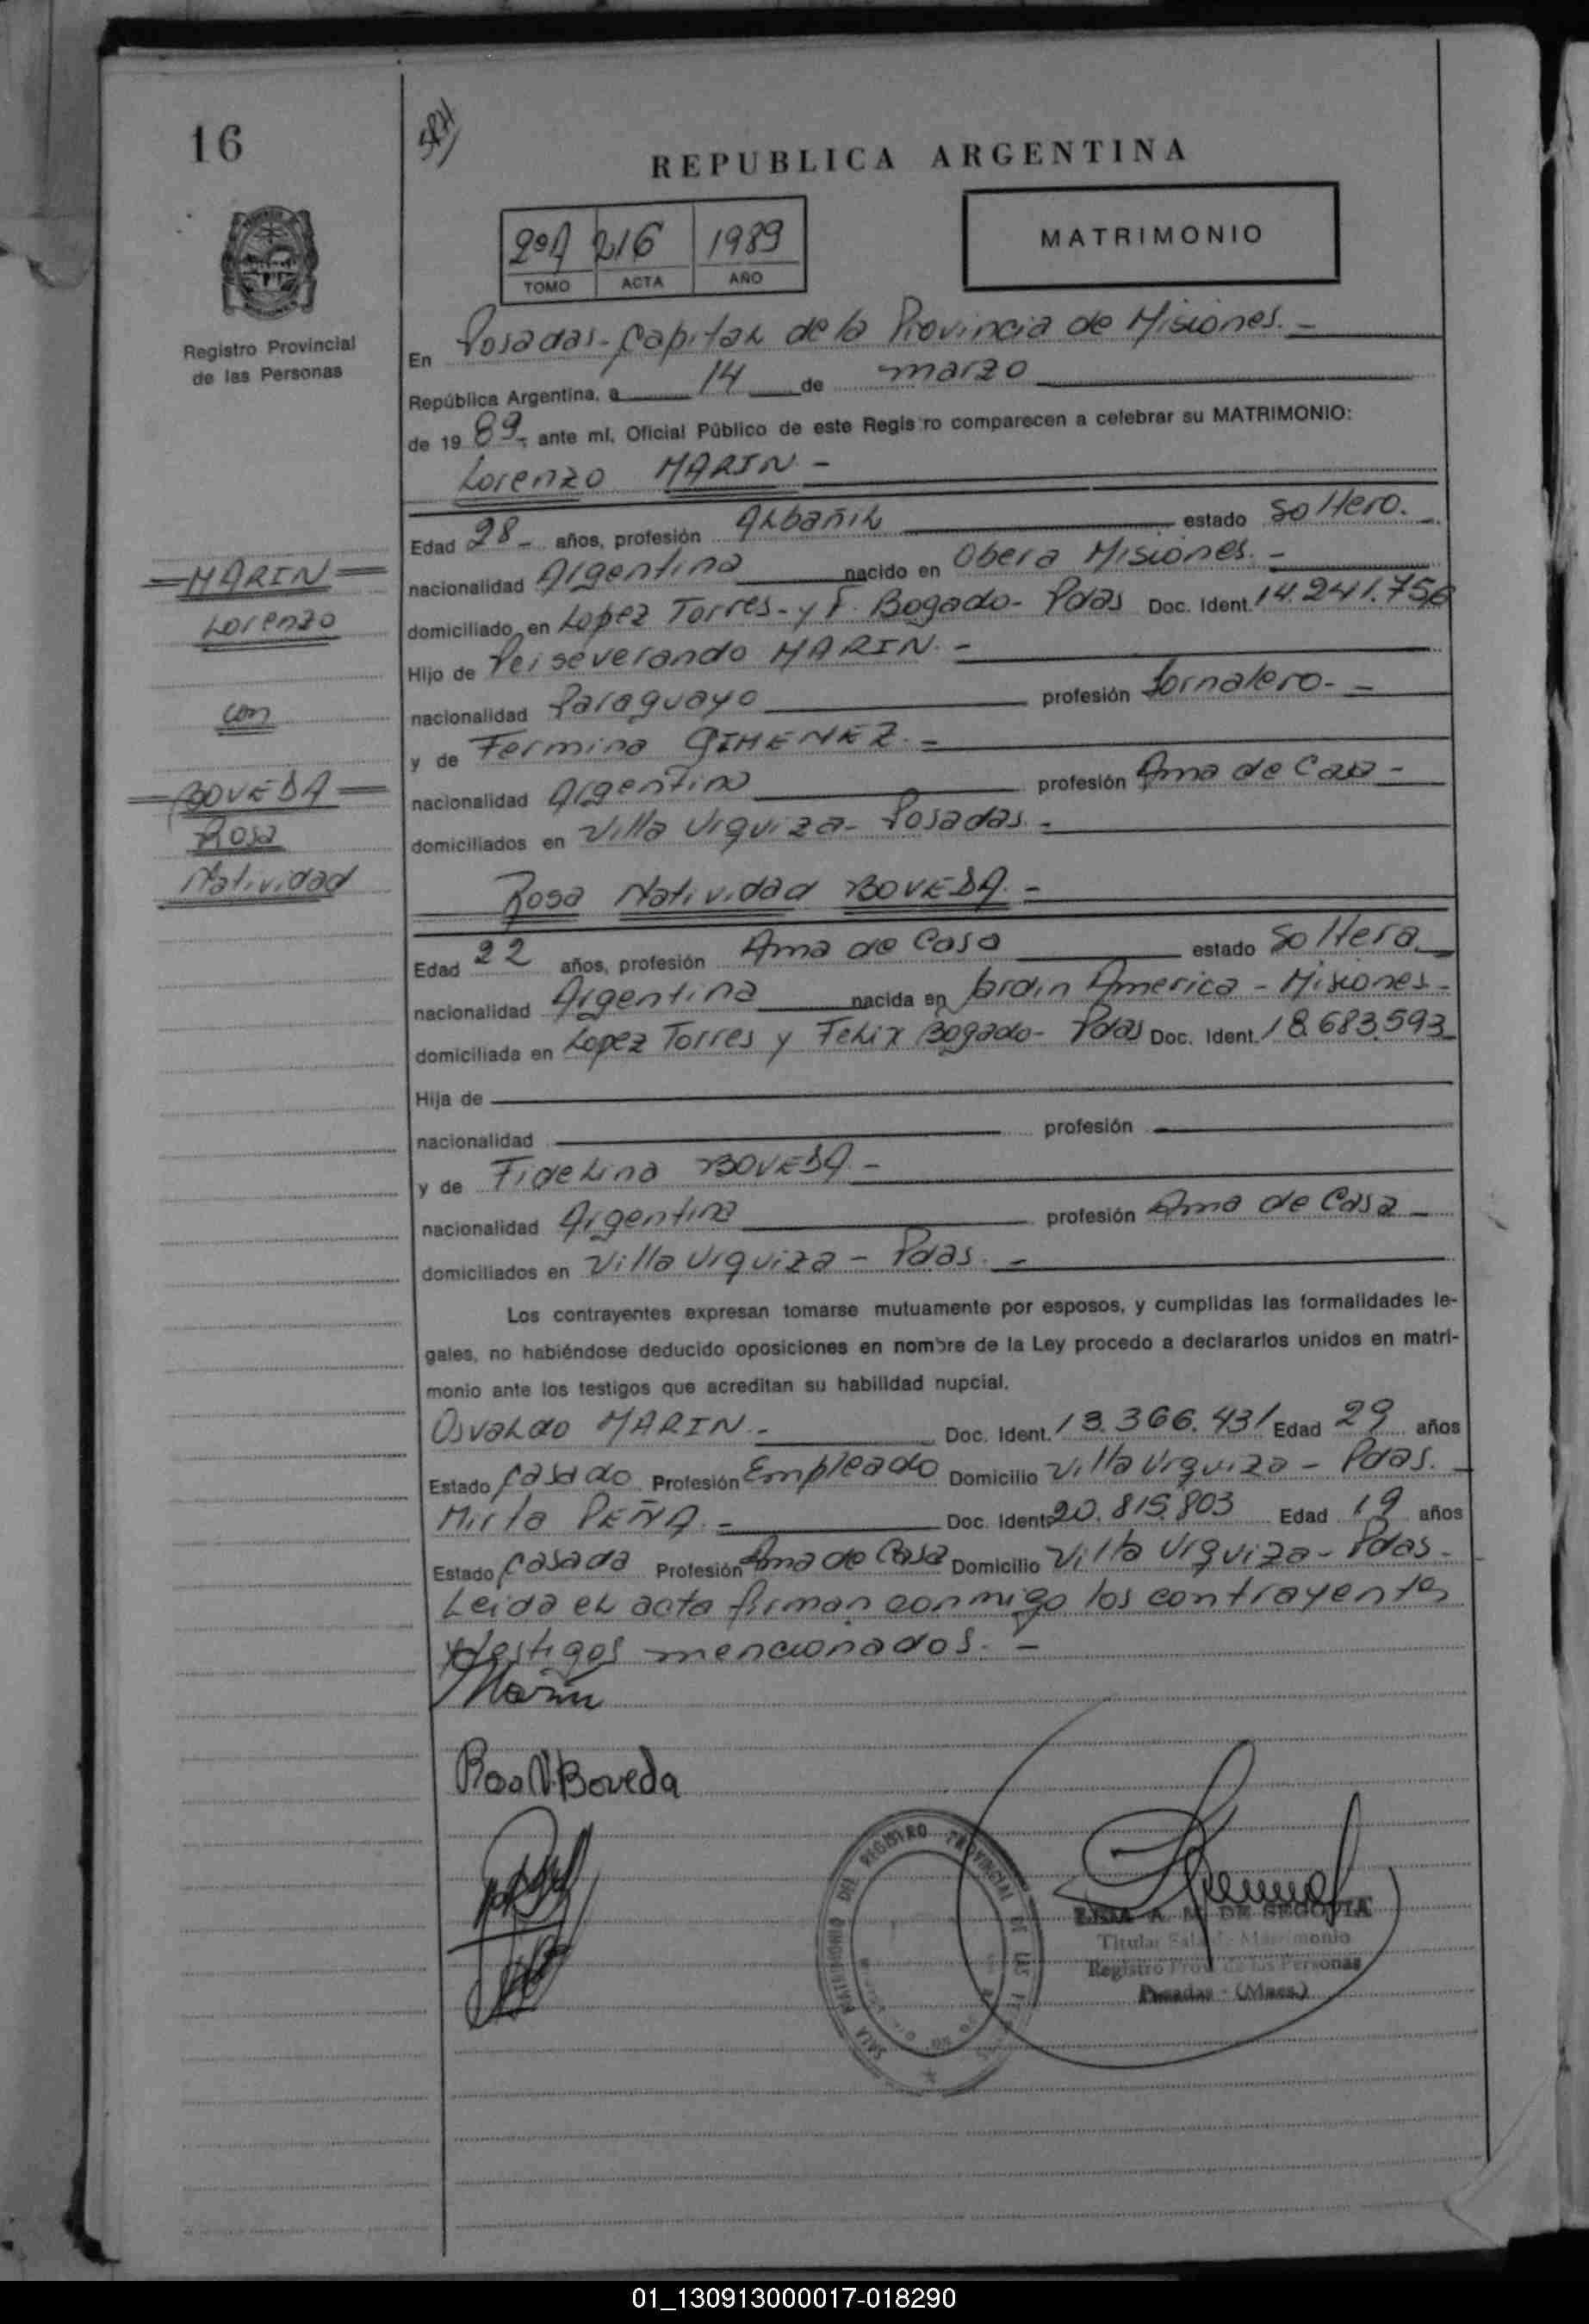 16
REPUBLICA ARGENTINA
2ºA 216 1989
TOMO ACTA AÑO
MATRIMONIO
Registro Provincial
de las Personas
En Posadas-Capital de la Provincia de Misiones.-
República Argentina, a 14 de marzo
de 1989, ante mí, Oficial Público de este Registro comparecen a celebrar su MATRIMONIO:
Lorenzo MARIN.-
Edad 28- años, profesión Albañil estado Soltero.
nacionalidad Argentina nacido en Obera Misiones.-
domiciliado en Lopez Torres- y F. Bogado- Pdas Doc. Ident. 14.241.756
Hijo de Perseverando MARIN.-
nacionalidad Paraguayo profesión Jornalero.-
y de Fermina GIMENEZ.-
nacionalidad Argentina profesión Ama de Casa-
domiciliados en Villa Urquiza- Posadas.-
MARIN
Lorenzo
con
BOVEDA
Rosa
Natividad
Rosa Natividad BOVEDA.-
Edad 22 años, profesión Ama de Casa estado Soltera
nacionalidad Argentina nacida en Jardin America - Misiones-
domiciliada en Lopez Torres y Felix Bogado- Pdas Doc. Ident. 18.683.593
Hija de
nacionalidad profesión
y de Fidelina BOVEDA.-
nacionalidad Argentina profesión Ama de Casa
domiciliados en Villa Urquiza - Pdas.-
Los contrayentes expresan tomarse mutuamente por esposos, y cumplidas las formalidades le-
gales, no habiéndose deducido oposiciones en nombre de la Ley procedo a declararlos unidos en matri-
monio ante los testigos que acreditan su habilidad nupcial.
Osvaldo MARIN.- Doc. Ident. 13.366.431 Edad 29 años
Estado Casado Profesión Empleado Domicilio Villa Urquiza - Pdas.
Mirta PEÑA.- Doc. Ident. 20.815.803 Edad 19 años
Estado Casada Profesión Ama de Casa Domicilio Villa Urquiza- Pdas-
Leida el acta firman conmigo los contrayentes
y testigos mencionados.-
Marin
Rosa N. Boveda
SALA MATRIMONIO DEL REGISTRO PROVINCIAL DE LAS
A. M. DE SEGOVIA
Titular Sala de Matrimonio
Registro Prov. de las Personas
Posadas - (Mnes.)
01_130913000017-018290